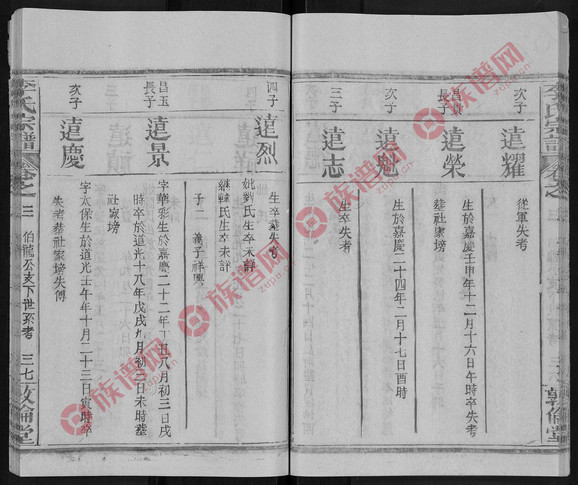 李氏宗譜
卷之
三
敦倫堂
次子
遠耀
從軍失考
昌貴長子
遠榮
生於嘉慶壬申年十二月十六日午時卒失考
葬社家塝
次子
遠魁
生於嘉慶二十四年二月十七日酉時
三子
遠志
生卒失考
四子
遠烈
生卒葬失考
姚劉氏生卒未詳
繼韓氏生卒未詳
子二 義子祥興
昌玉長子
遠景
字華彩生於嘉慶二十二年丁丑八月初三日戌
時卒於道光十八年戊戌九月初三日未時葬
社家塝
次子
遠慶
字太保生於道光壬午年十月二十三日寅時卒
失考葬社家塝失傳
李氏宗譜
卷之
三
伯龍公支下世系考
三七
敦倫堂
族谱网
zupu.cn
族谱网
zupu.cn
族谱网
族谱网